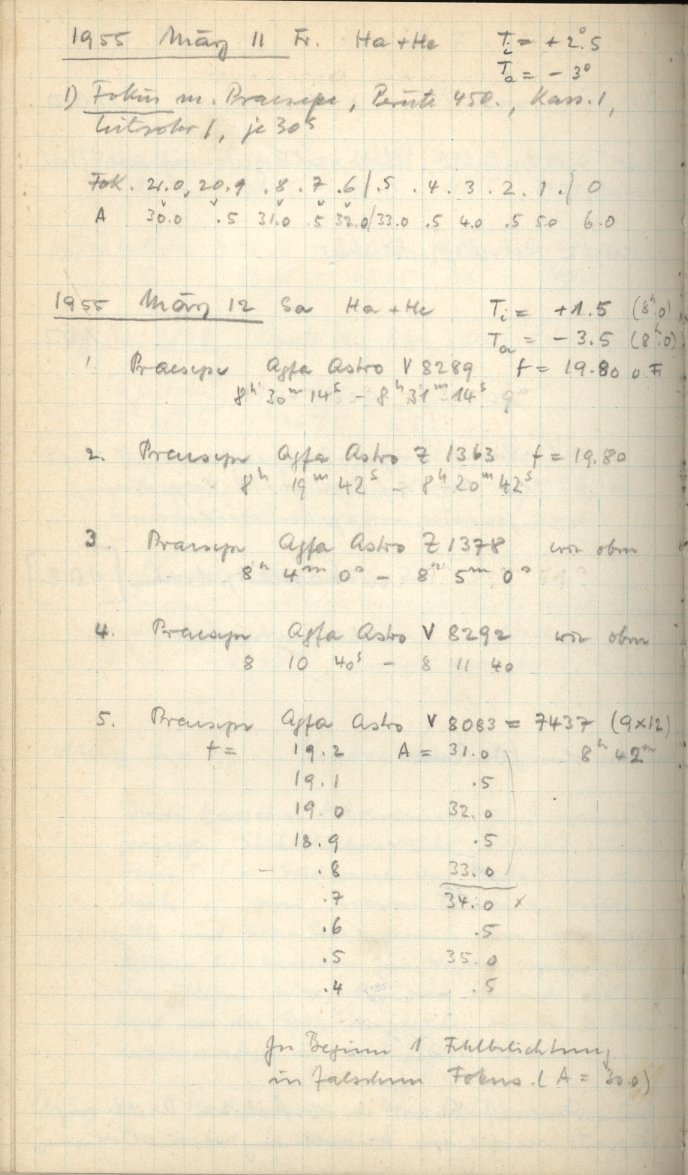 1955 März 11 Fr. Ha + He Ti = + 2°.5
Ta = - 3°
1) Fokus m. Praesepe, Perutz 450., Kass. 1,
Leitrohr 1, je 30s
Fok. 21.0, 20.9 .8 .7 .6 / .5 .4 .3 .2 .1 . / 0
A 30.0 .5 31.0 .5 32.0 / 33.0 .5 4.0 .5 5.0 6.0
1955 März 12 Sa Ha + He Ti = + 1.5 (8h.0)
Ta = - 3.5 (8h.0)
1 Praesepe Agfa Astro V 8289 f = 19.80
8h 30m 14s - 8h 31m 14s
2. Praesepe Agfa Astro Z 1363 f = 19.80
8h 19m 42s - 8h 20m 42s
3. Praesepe Agfa Astro Z 1378 wie oben
8h 4m 0s - 8h 5m 0s
4. Praesepe Agfa Astro V 8292 wie oben
8 10 40s - 8 11 40
5. Praesepe Agfa Astro V 8083 = 7437 (9x12)
f = 19.2 A = 31.0 8h 42m
19.1 .5
19.0 32.0
18.9 .5
- .8 33.0
.7 34.0 x
.6 .5
.5 35.0
.4 .5
Zu Beginn 1 Fehlbelichtung
in falschem Fokus. (A = 30.0)